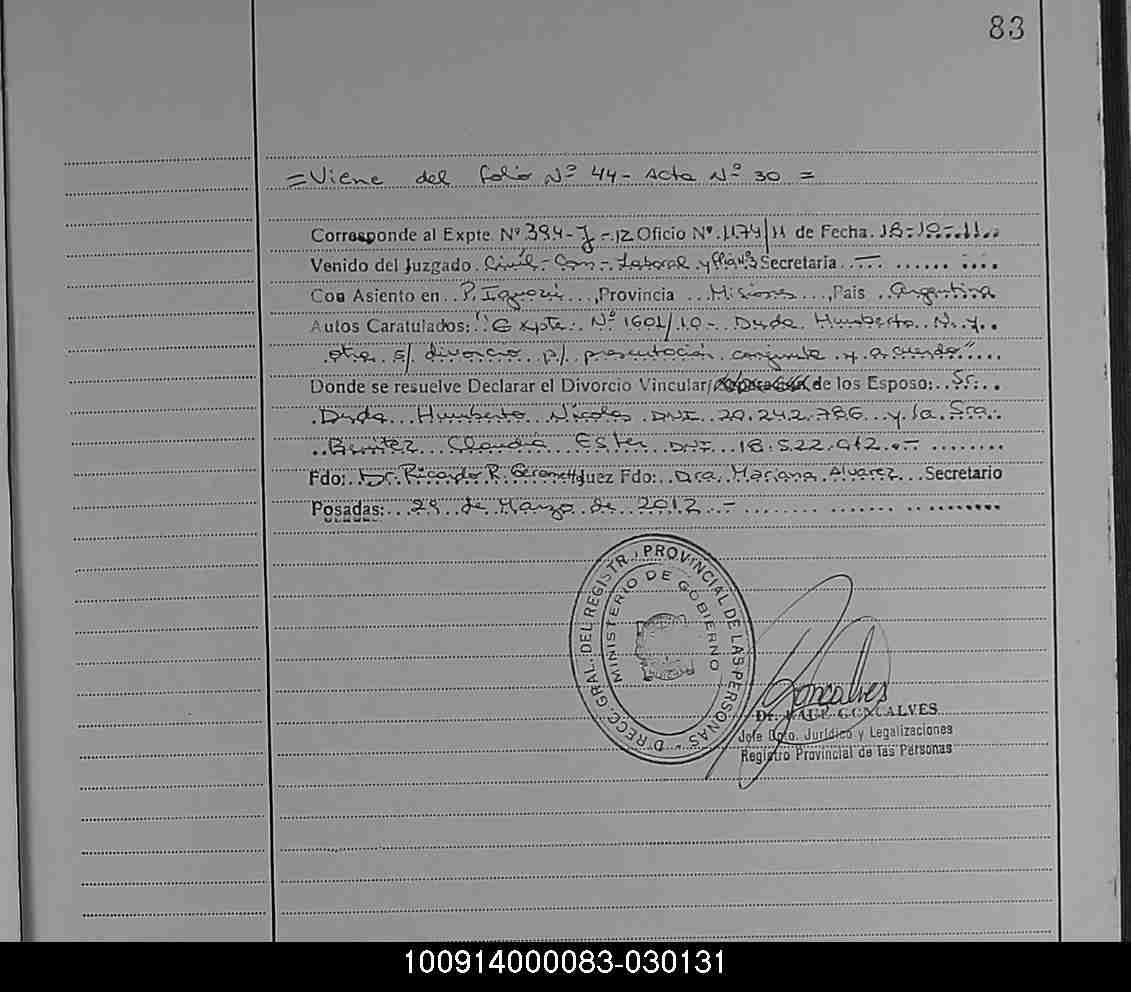 83
=Viene del folio Nº 44- Acta Nº 30 =
Corresponde al Expte. Nº 394-J-12 Oficio Nº 1174/11 de Fecha. 18-10-11..
Venido del Juzgado. Civil-Com-Laboral y Flia Nº3 Secretaría
Con Asiento en P. Iguazú, Provincia Misiones, País Argentina
Autos Caratulados: "Expte. Nº 1601/10- Duda Humberto N. y
otra s/ divorcio p/ presentación conjunta y acuerdo"
Donde se resuelve Declarar el Divorcio Vincular/ de los Esposo: Sr.
Duda Humberto Nicolas DNI 20.242.786 y la Sra.
Benitez Claudia Ester DNI 18.522.912.-
Fdo: Dr. Ricardo R. Juez Fdo: Dra. Mariana Alvarez Secretario
Posadas: 29 de Marzo de 2012.-
DIRECC. GRAL. DEL REGISTR. PROVINCIAL DE LAS PERSONAS
MINISTERIO DE GOBIERNO
Goncalves
Dr. RAUL GONCALVES
Jefe Dpto. Jurídico y Legalizaciones
Registro Provincial de las Personas
100914000083-030131